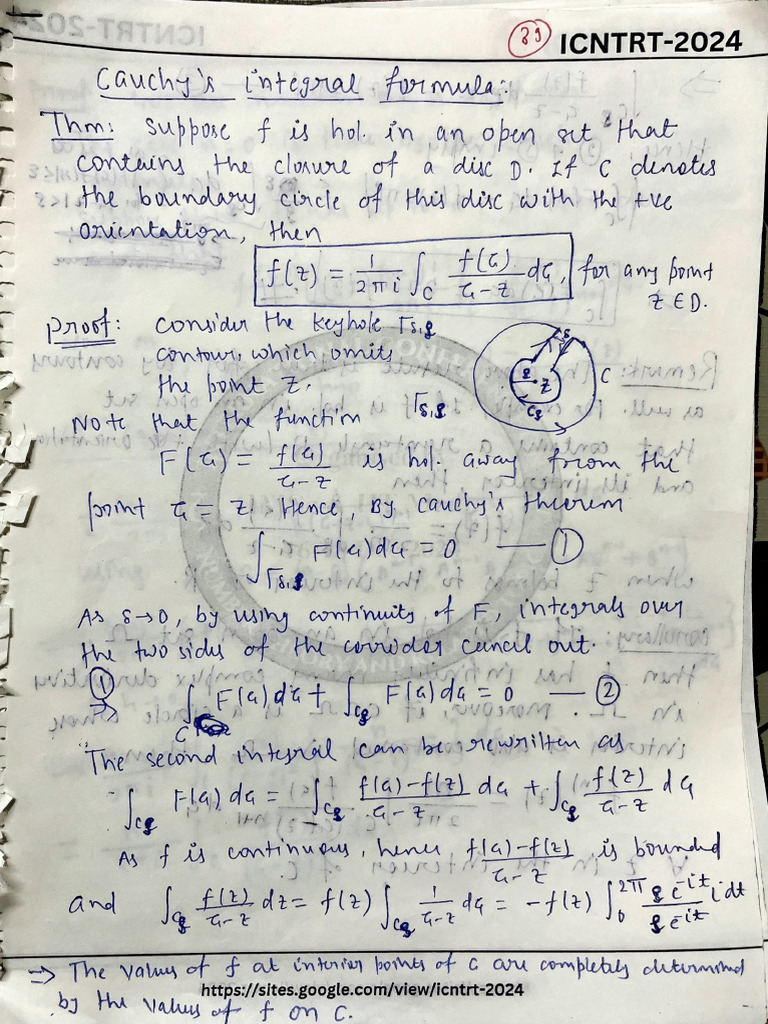 39 ICNTRT-2024
Cauchy's integral formula:
Thm: Suppose f is hol. in an open set that
contains the closure of a disc D. If C denotes
the boundary circle of this disc with the +ve
orientation, then
f(z) = 1/2πi ∫_C f(ζ)/ζ-z dζ, for any point
z ∈ D.
Proof: Consider the keyhole Γδ,ρ
contour, which omits
the point z.
δ ρ z Cρ C Γδ,ρ
Note that the function
F(ζ) = f(ζ)/ζ-z is hol. away from the
point ζ = z. Hence, By Cauchy's theorem
∫_Γδ,ρ F(ζ)dζ = 0 — ①
As δ→0, by using continuity of F, integrals over
the two sides of the corridor cancil out.
① ⇒ ∫_C F(ζ)dζ + ∫_Cρ F(ζ)dζ = 0 — ②
The second integral can be rewritten as
∫_Cρ F(ζ)dζ = ∫_Cρ f(ζ)-f(z)/ζ-z dζ + ∫_Cρ f(z)/ζ-z dζ
As f is continuous, hence f(ζ)-f(z)/ζ-z is bounded
and ∫_Cρ f(z)/ζ-z dz = f(z) ∫_Cρ 1/ζ-z dζ = -f(z) ∫_0^2π ρe^-it/ρe^-it i dt
⇒ The values of f at interior points of C are completely determined
by the values of f on C.
https://sites.google.com/view/icntrt-2024